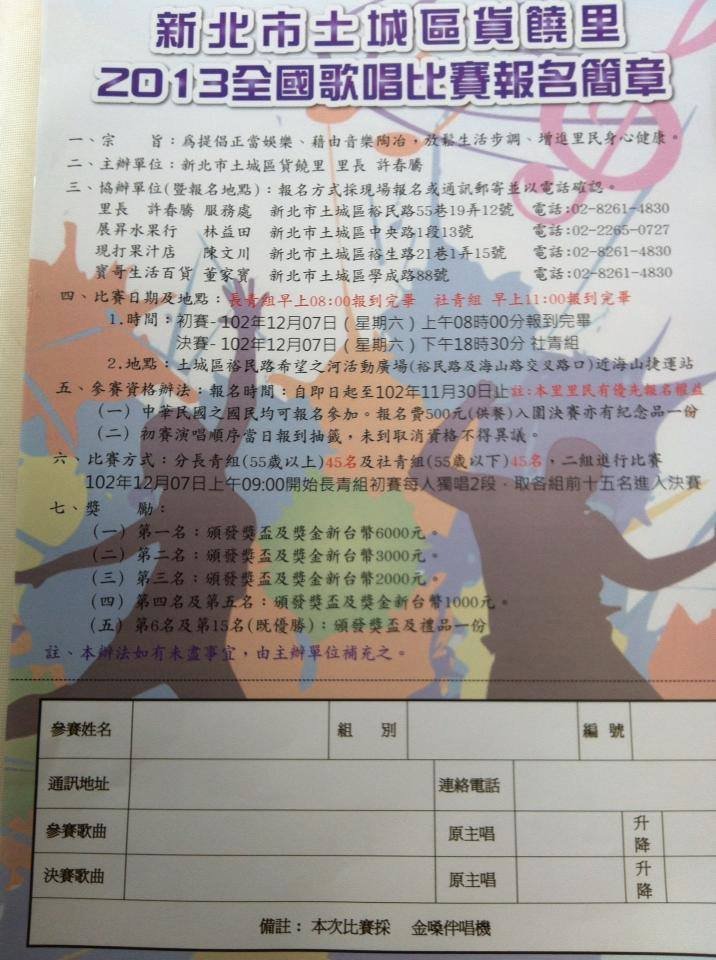 新北市土城區貨饒里
2013全國歌唱比賽報名簡章
一、宗　　旨：為提倡正當娛樂、藉由音樂陶冶，放鬆生活步調、增進里民身心健康。
二、主辦單位：新北市土城區貨饒里 里長 許春騰
三、協辦單位(暨報名地點)：報名方式採現場報名或通訊郵寄並以電話確認。
里長　許春騰 服務處　新北市土城區裕民路55巷19弄12號　電話:02-8261-4830
展昇水果行　林益田　新北市土城區中央路1段13號　電話:02-2265-0727
現打果汁店　陳文川　新北市土城區裕生路21巷1弄15號　電話:02-8261-4830
寶哥生活百貨 董家寶　新北市土城區學成路88號　電話:02-8261-4830
四、比賽日期及地點：長青組早上08:00報到完畢　社青組 早上11:00報到完畢
1.時間：初賽- 102年12月07日（星期六）上午08時00分報到完畢
決賽- 102年12月07日（星期六）下午18時30分 社青組
2.地點：土城區裕民路希望之河活動廣場(裕民路及海山路交叉路口)近海山捷運站
五、參賽資格辦法：報名時間：自即日起至102年11月30日止註:本里里民有優先報名權益
(一) 中華民國之國民均可報名參加。報名費500元(供餐)入圍決賽亦有紀念品一份
(二) 初賽演唱順序當日報到抽籤，未到取消資格不得異議。
六、比賽方式：分長青組(55歲以上)45名及社青組(55歲以下)45名，二組進行比賽
102年12月07日上午09:00開始長青組初賽每人獨唱2段﹐取各組前十五名進入決賽
七、獎　　勵：
(一) 第一名：頒發獎盃及獎金新台幣6000元。
(二) 第二名：頒發獎盃及獎金新台幣3000元。
(三) 第三名：頒發獎盃及獎金新台幣2000元。
(四) 第四名及第五名：頒發獎盃及獎金新台幣1000元。
(五) 第6名及第15名(既優勝)：頒發獎盃及禮品一份
註、本辦法如有未盡事宜，由主辦單位補充之。
參賽姓名　組　別　編 號
通訊地址　連絡電話
參賽歌曲　原主唱　升降
決賽歌曲　原主唱　升降
備註： 本次比賽採　金嗓伴唱機